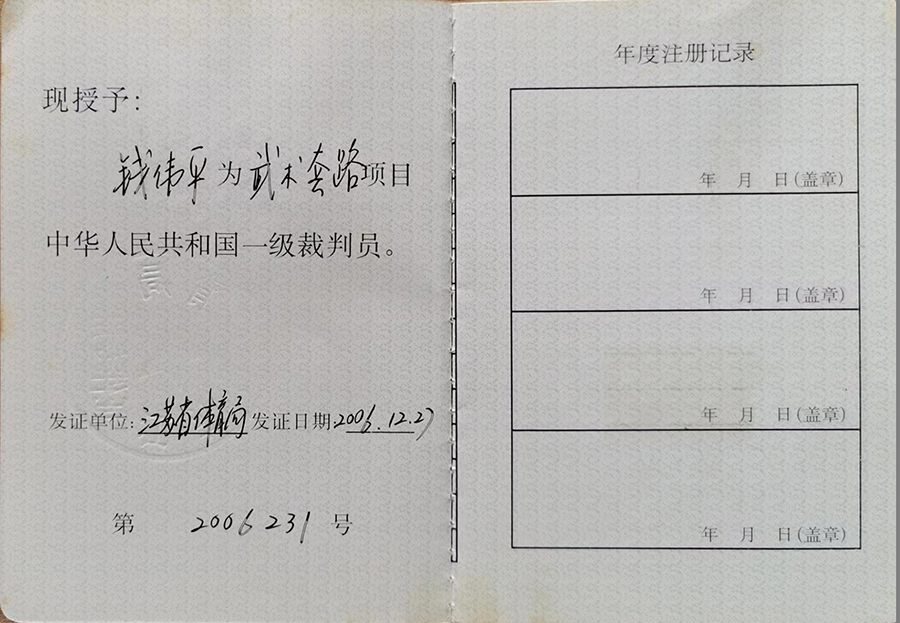 现授予:
钱伟平为武术套路项目
中华人民共和国一级裁判员。
发证单位:江苏省体育局 发证日期:2006.12.27
第 2006231 号
年度注册记录
年 月 日(盖章)
年 月 日(盖章)
年 月 日(盖章)
年 月 日(盖章)